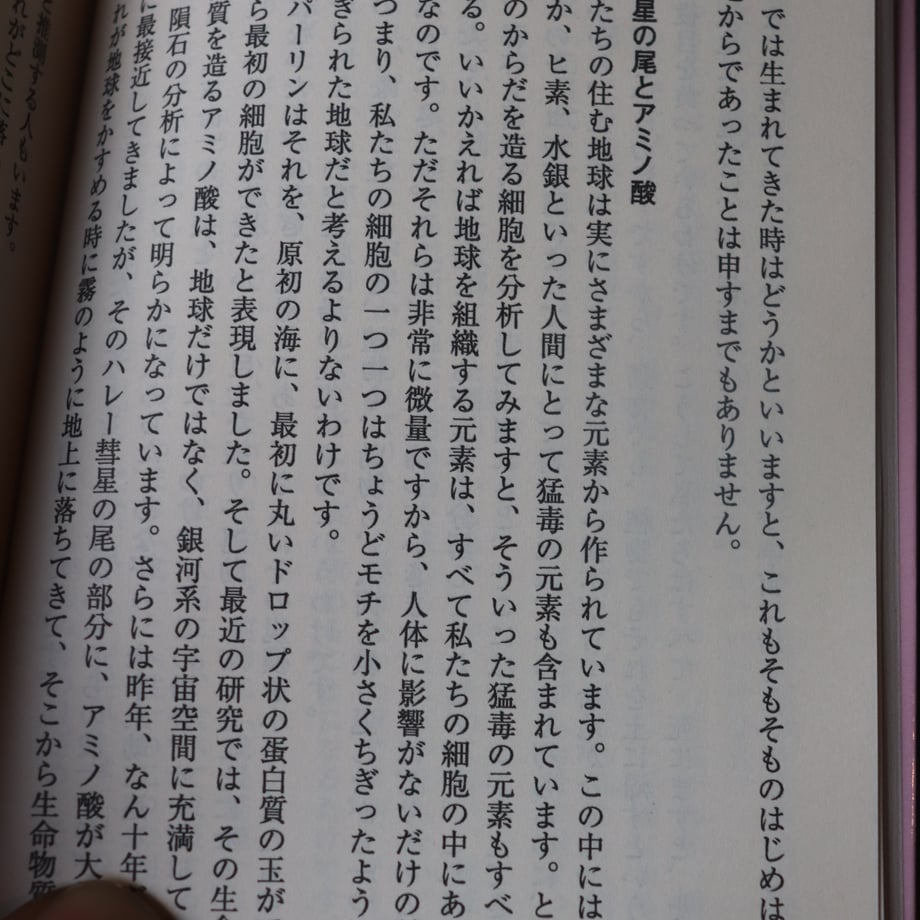 では生まれてきた時はどうかといいますと、これもそもそものはじめは
からであったことは申すまでもありません。
星の尾とアミノ酸
たちの住む地球は実にさまざまな元素から作られています。この中には
か、ヒ素、水銀といった人間にとって猛毒の元素も含まれています。と
のからだを造る細胞を分析してみますと、そういった猛毒の元素もすべ
る。いいかえれば地球を組織する元素は、すべて私たちの細胞の中にあ
なのです。ただそれらは非常に微量ですから、人体に影響がないだけの
つまり、私たちの細胞の一つ一つはちょうどモチを小さくちぎったよう
ぎられた地球だと考えるよりないわけです。
パーリンはそれを、原初の海に、最初に丸いドロップ状の蛋白質の玉が
ら最初の細胞ができたと表現しました。そして最近の研究では、その生
質を造るアミノ酸は、地球だけではなく、銀河系の宇宙空間に充満して
隕石の分析によって明らかになっています。さらには昨年、なん十年
に最接近してきましたが、そのハレー彗星の尾の部分に、アミノ酸が大
れが地球をかすめる時に霧のように地上に落ちてきて、そこから生命物質
推測する人もいます。
れがどこに落